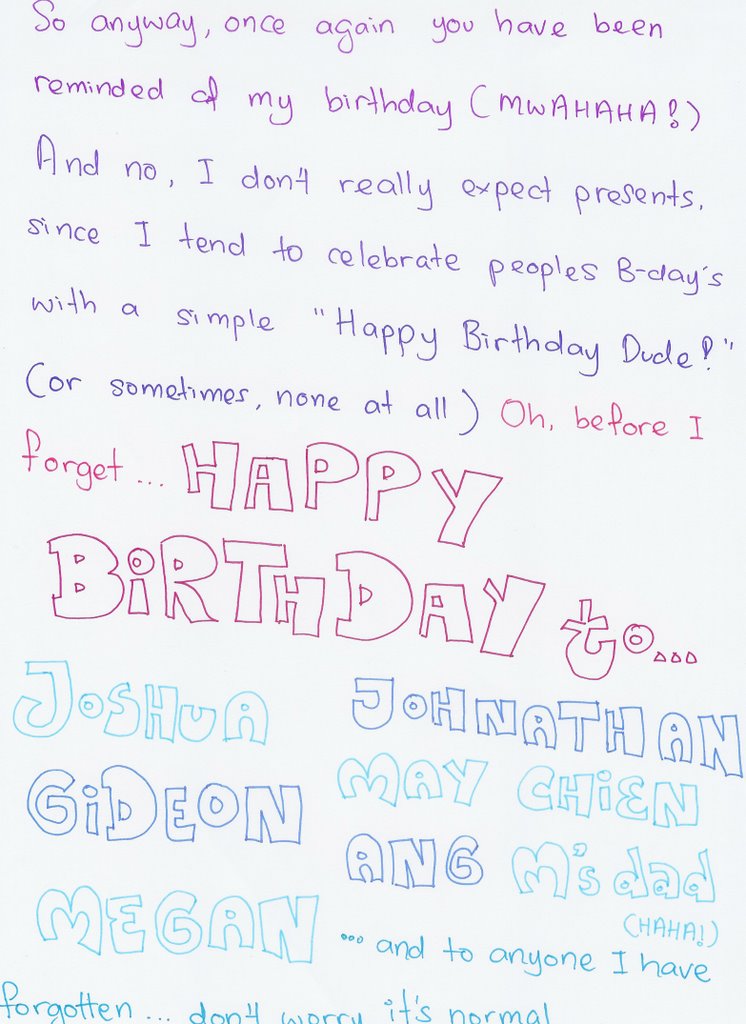 So anyway, once again you have been
reminded of my birthday (MWAHAHA!)
And no, I don't really expect presents,
since I tend to celebrate peoples B-day's
with a simple "Happy Birthday Dude!"
(or sometimes, none at all) Oh, before I
forget... HAPPY
BiRTHDAY to...
JOSHUA JOHNATHAN
GiDEON MAY CHiEN
ANG M's dad
MEGAN (HAHA!)
...and to anyone I have
forgotten... don't worry it's normal